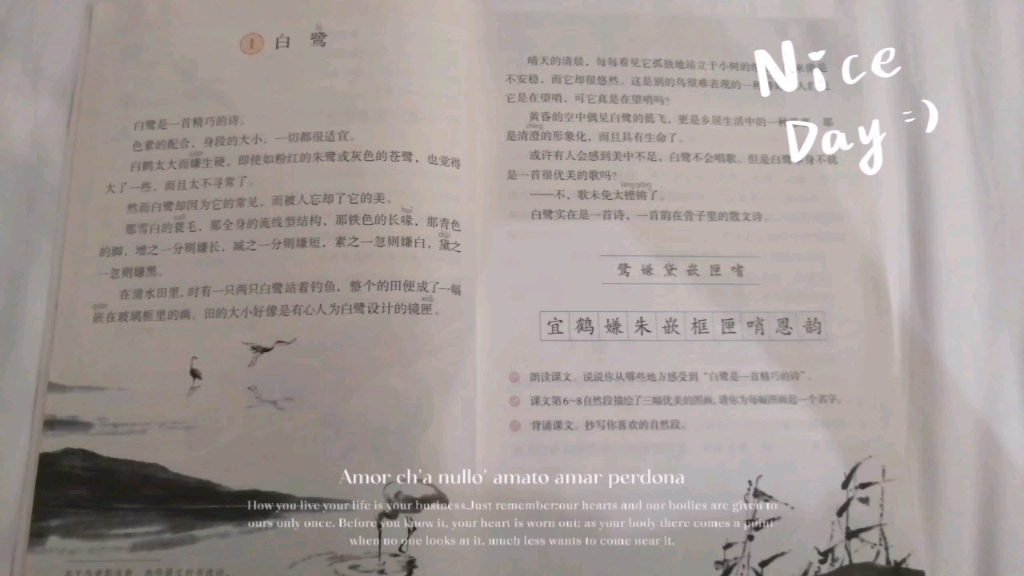 1 白鹭
lù
白鹭是一首精巧的诗。
色素的配合，身段的大小，一切都很适宜。
白鹤太大而嫌生硬，即使如粉红的朱鹭或灰色的苍鹭，也觉得
大了一些，而且太不寻常了。
然而白鹭却因为它的常见，而被人忘却了它的美。
那雪白的蓑毛，那全身的流线型结构，那铁色的长喙，那青色
的脚，增之一分则嫌长，减之一分则嫌短，素之一忽则嫌白，黛之
一忽则嫌黑。
在清水田里，时有一只两只白鹭站着钓鱼，整个的田便成了一幅
嵌在玻璃框里的画。田的大小好像是有心人为白鹭设计的镜匣。
晴天的清晨，每每看见它孤独地站立于小树的
不安稳，而它却很悠然。这是别的鸟很难表现的一
它是在望哨，可它真是在望哨吗？
黄昏的空中偶见白鹭的低飞，更是乡居生活中的一
是清澄的形象化，而且具有生命了。
或许有人会感到美中不足，白鹭不会唱歌。但是白鹭 身不就
是一首很优美的歌吗？
——不，歌未免太铿锵了。
白鹭实在是一首诗，一首韵在骨子里的散文诗。
鹭 嫌 黛 嵌 匣 哨
宜 鹤 嫌 朱 嵌 框 匣 哨 恩 韵
朗读课文。说说你从哪些地方感受到“白鹭是一首精巧的诗”。
课文第6~8自然段描绘了三幅优美的图画，请你为每幅图画起一个名字。
背诵课文。抄写你喜欢的自然段。
Nice
Day =)
Amor ch'a nullo' amato amar perdona
How you live your life is your business.Just remember:our hearts and our bodies are given to
ours only once. Before you know it, your heart is worn out; as your body there comes a point
when no one looks at it, much less wants to come near it.